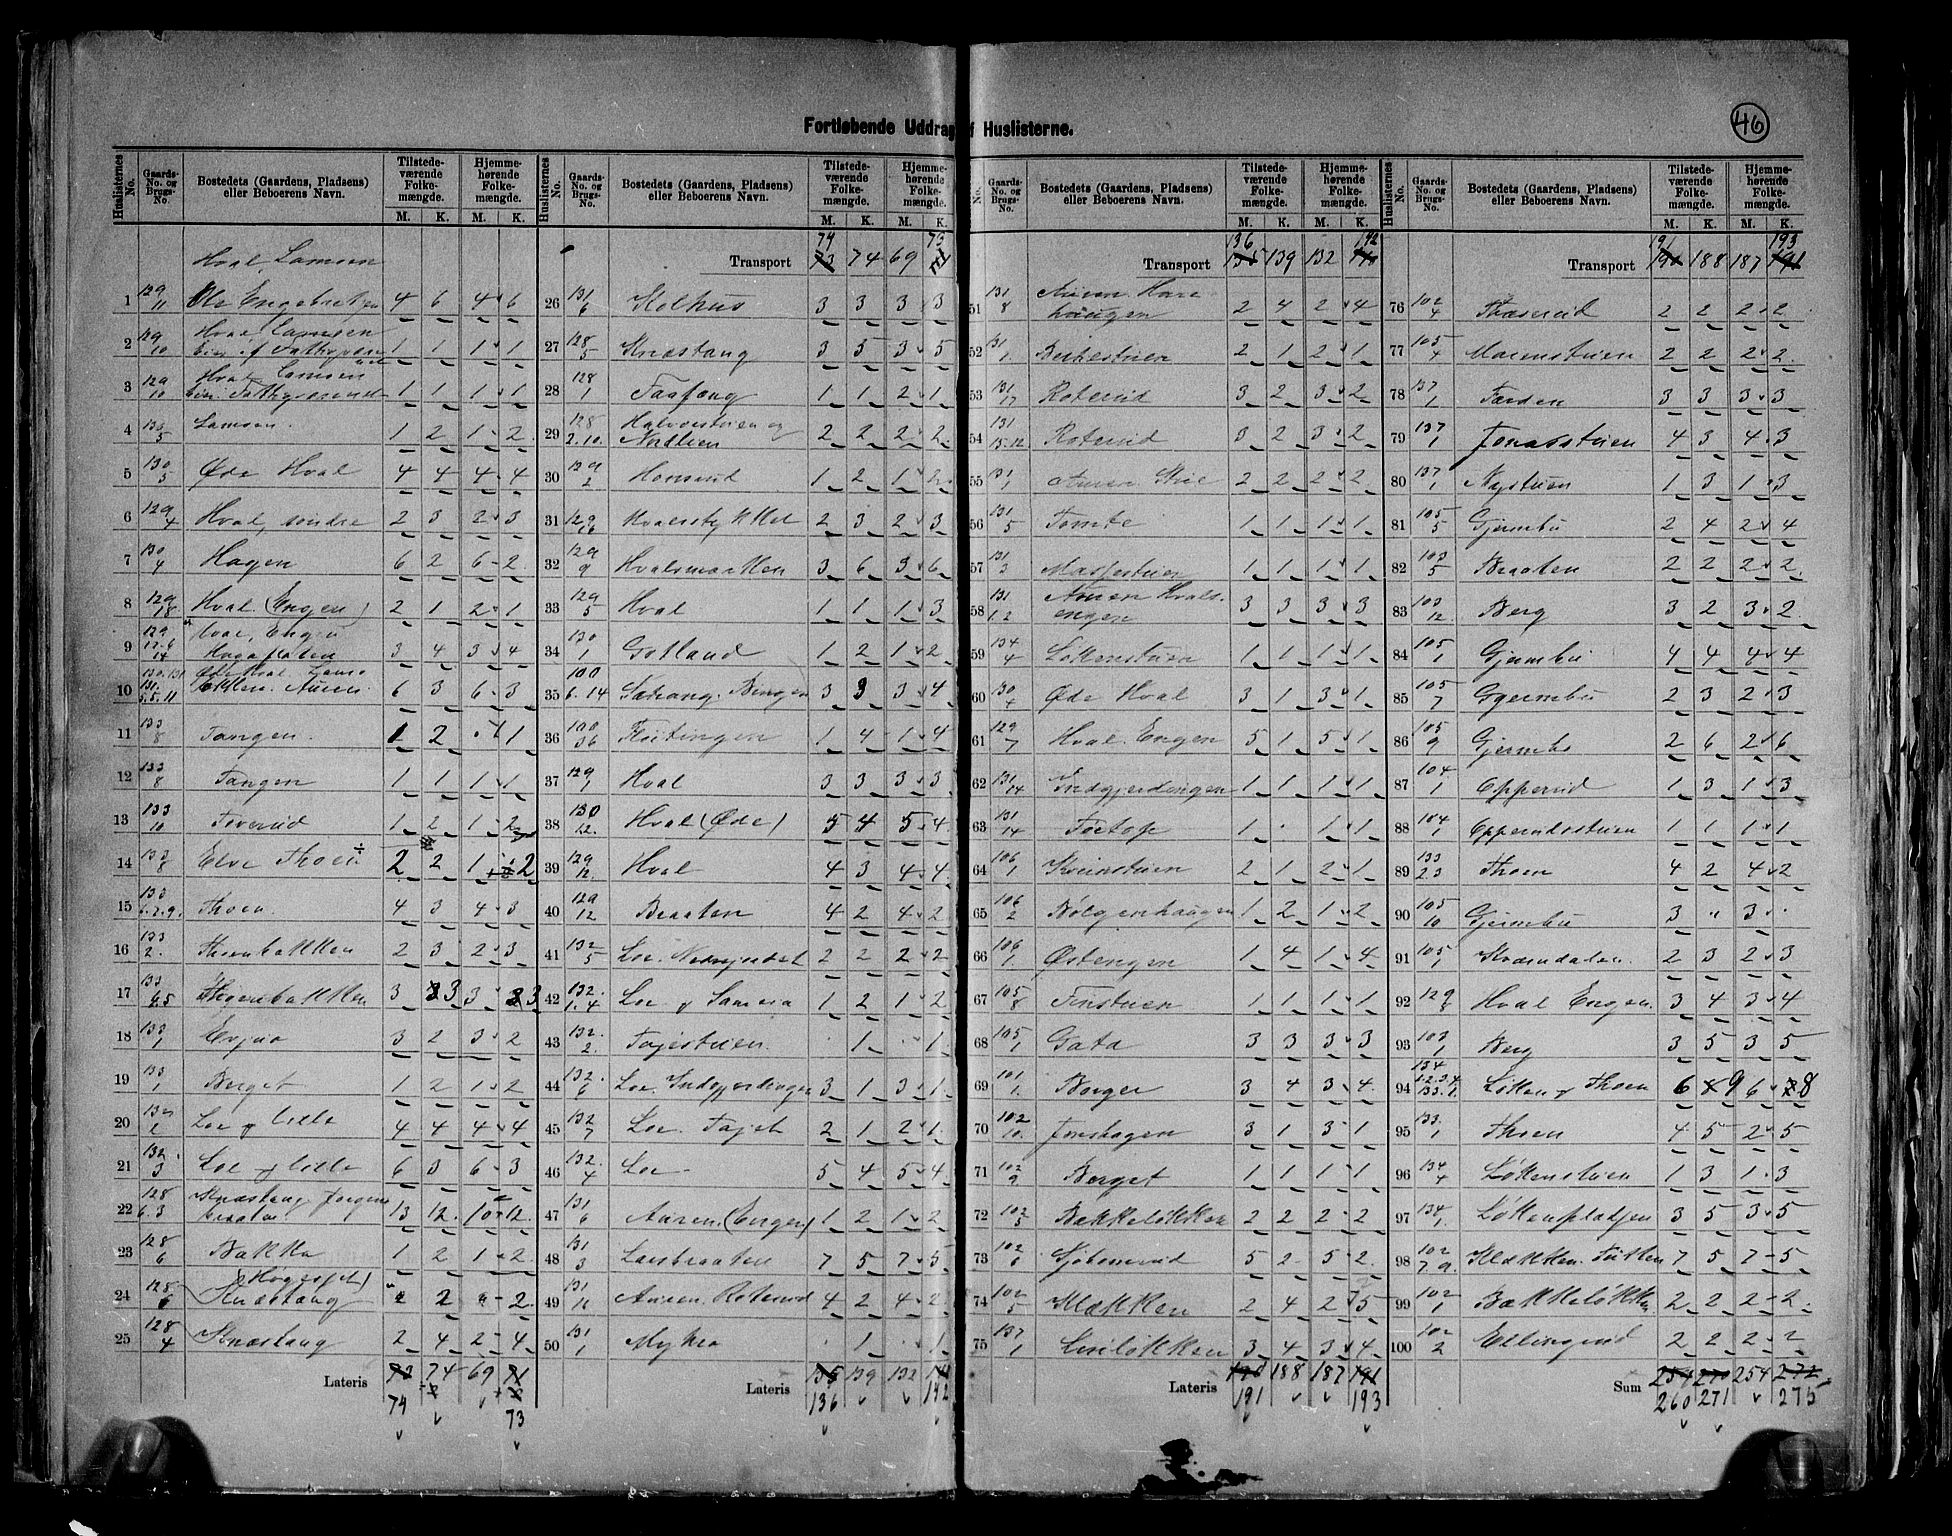 46
Fortløbende Uddrag af Huslisterne.
Huslisternes No. Gaards-No. og Brugs-No. Bostedets (Gaardens, Pladsens) eller Beboerens Navn. Tilstedeværende Folkemængde. M. K. Hjemmehørende Folkemængde. M. K.
Hval, Lamoen
1 129/11 Ole Engebretsen 4 6 4 6
2 129/10 Hval, Lamoen 1 1 1 1
3 129/10 Hval, Lamoen 1 1 1 1
4 Lamoen. 1 2 1 2
5 130/3 Øde Hval 4 4 4 4
6 129/4 Hval, søndre 2 3 2 3
7 130/4 Hagen 6 2 6 2
8 129/18 Hval (Engen) 2 1 2 1
9 Hval, Engen 3 4 3 4
10 6 3 6 3
11 133/8 Tangen. 1 2 1
12 133/8 Tangen 1 1 1 1
13 133/10 Toverud 1 2 1 2
14 133/8 Elve Thoen 2 2 1 2
15 Thoen. 4 3 4 3
16 133/2. Thoenbakken 2 3 2 3
17 3 3 3 3
18 133/1 3 2 3 2
19 133/1 Berget 1 2 1 2
20 Loe lille 4 4 4 4
21 132/3 Loe lille 6 3 6 3
22 128/6.3 Knæstang 13 12 10 12
23 128/6 Bakke 1 2 1 2
24 128/6 Knæstang 2 2
25 128/4 Knæstang 2 4 2 4
Lateris 73 74 69 71
74 73
Transport 73 74 69 71
74 73
26 131/6 Kolhus 3 3 3 3
27 128/5 Knæstang 3 5 3 5
28 128/1 Faafæng 1 1 2 1
29 128/2.10 Halvorstuen og Nordlien 2 2 2 2
30 129/2 Honerud 1 2 1 2
31 2 3 2 3
32 129/9 Hvalsmarken 3 6 3 6
33 129/5 Hval 1 1 1 3
34 130/1 Gotland 1 2 1 2
35 100/6.14 3 3 3 4
36 100/36 1 4 1 4
37 129/1 Hval 3 3 3 3
38 130/12. Hval (Øde) 5 4 5 4
39 129/12 Hval 4 3 4 4
40 129/12 Braaten 4 2 4 2
41 132/5 Loe. 2 2 2 2
42 132./1.4 Loe 1 2 1 2
43 132./2. Fajestuen. 1 1
44 132./6 Loe. Indgjerdingen 3 1 3 1
45 132./7 Loe. Fajet 2 1 2 1
46 132./4 Loe 5 4 5 4
47 131/6 Aaren (Engen) 1 2 1 2
48 131/3 Larsbraaten 7 5 7 5
49 131/11 4 2 4 2
50 131/1 Myhra 1 1
Lateris 135 139 132 141
136 142
Transport 135 139 132 141
136 142
51 131/8 2 4 2 4
52 131/1. 2 1 2 1
53 131/17 Roterud 3 2 3 2
54 131/15.12 Roterud 3 2 3 2
55 131/1 2 2 2 2
56 131/5 Tomte 1 1 1 1
57 131/3 1 1 1 1
58 131/1.2 3 3 3 3
59 134/4 Løkenstuen 1 1 1 1
60 130/4 Øde Hval 3 1 3 1
61 129/7 Hval. Engen 5 1 5 1
62 131/14 Indgjerdingen 1 1 1 1
63 131/14 Toetop 1 1 1
64 106/1 2 1 2 1
65 106/2 Bølgenhaugen 1 2 1 2
66 106/1. Østengen 1 4 1 4
67 105/8 Finstuen 1 1 1 1
68 105/1 Gata 3 3 3 3
69 101/1. Borger 3 4 3 4
70 102/10. Jonshagen 3 1 3 1
71 102/9 Berget 1 1 1 1
72 102/5 Bækkeløkken 2 2 2 2
73 102/6 Sjobonerud 5 2 5 2
74 102/5 Klækken 2 4 2 5
75 137/1 Lisiløkken 3 4 3 4
Lateris 190 188 187 191
191 193
Transport 190 188 187 191
191 193
76 102/4 Thoserud 2 2 2 2
77 105/4 Marenstuen 2 2 2 2
78 137/1 Færden 3 3 3 3
79 137/1 Jonasstuen 4 3 4 3
80 137/1 Nystuen 1 3 1 3
81 105/5 Gjermbu 2 4 2 4
82 103/5 Braaten 2 2 2 2
83 103/12 Berg 3 2 3 2
84 105/1 Gjermbu 4 4 4 4
85 105/7 Gjermbu 2 3 2 3
86 105/9 Gjermbu 2 6 2 6
87 104/1 Opperud 1 3 1 3
88 104/1 Opperudstuen 1 1 1 1
89 133/2.3 Thoen 4 2 4 2
90 105/10 Gjermbu 3 " 3
91 105/1 2 3 2 3
92 Hval Engen. 3 4 3 4
93 103/1 Berg 3 5 3 5
94 134/1.2.3.4 133.1. Løken & Thoen 6 9 6 8
95 133./1 Thoen 4 5 2 5
96 134/4 Løkenstuen 1 3 1 3
97 134/1. Løkenpladsen 3 5 3 5
98 102/7.9. Klækken. 7 5 7 5
99 102/1 Bækkeløkken 2 2 2 2
100 102/2 Ellingsrud 2 2 2 2
Sum 259 270 254 272
260 271 275